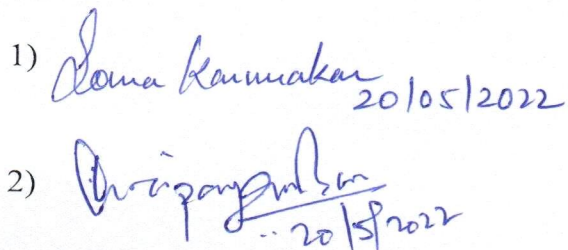 1) Soma Karmakar 20/05/2022
2) 20/5/2022